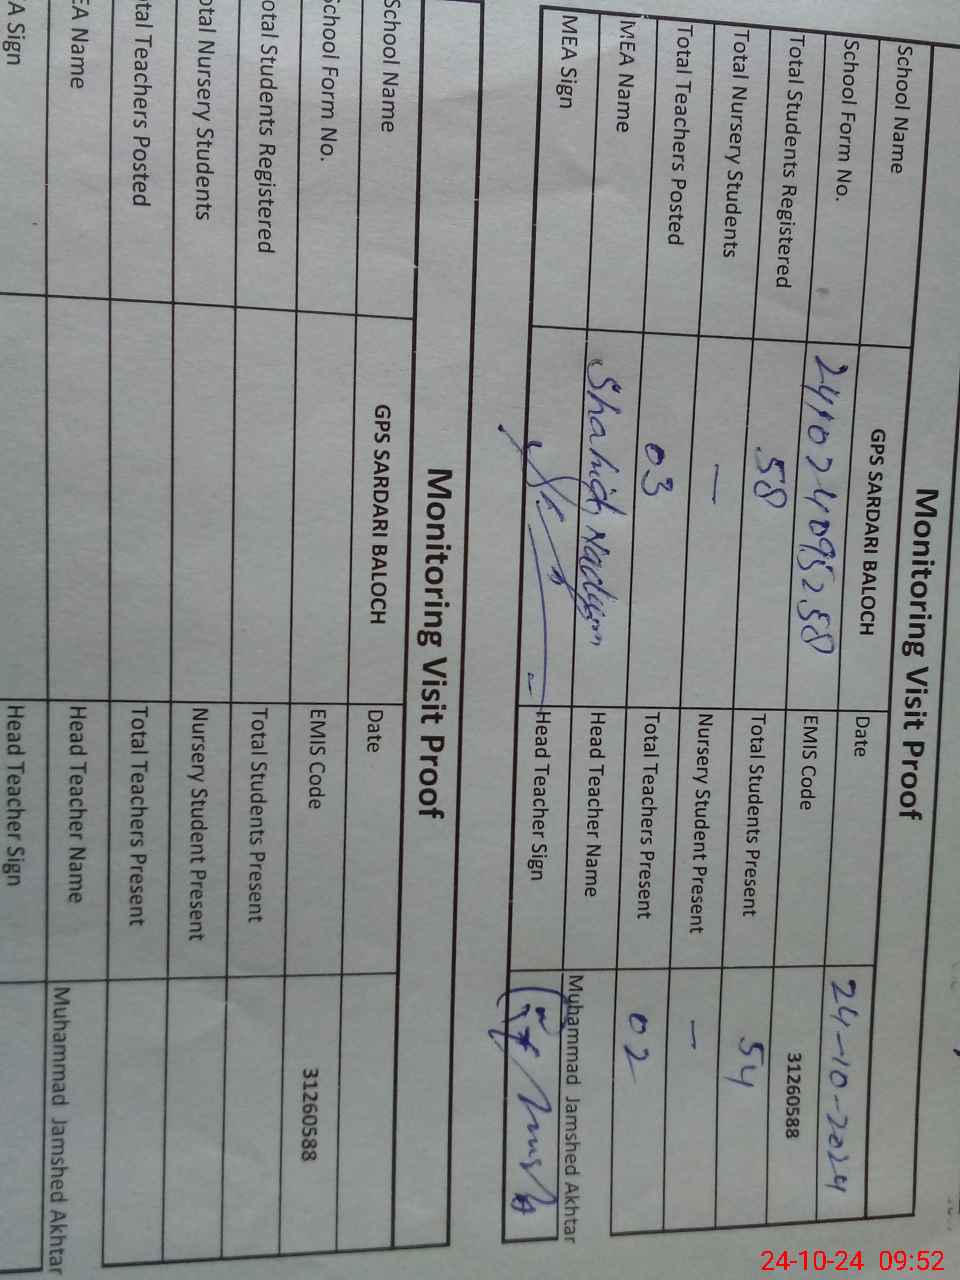 Monitoring Visit Proof
School Name GPS SARDARI BALOCH Date 24-10-2024
School Form No. 241024095258 EMIS Code 31260588
Total Students Registered 58 Total Students Present 54
Total Nursery Students — Nursery Student Present —
Total Teachers Posted 03 Total Teachers Present 02
MEA Name Shahid Nadeem Head Teacher Name Muhammad Jamshed Akhtar
MEA Sign Head Teacher Sign
Monitoring Visit Proof
School Name GPS SARDARI BALOCH Date
School Form No. EMIS Code 31260588
otal Students Registered Total Students Present
otal Nursery Students Nursery Student Present
tal Teachers Posted Total Teachers Present
EA Name Head Teacher Name Muhammad Jamshed Akhtar
A Sign Head Teacher Sign
24-10-24 09:52